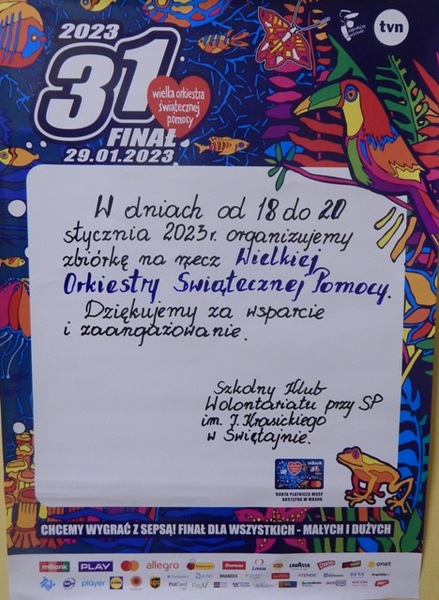 2023
31
FINAŁ
29.01.2023
wielka orkiestra
świątecznej
pomocy
tvn
W dniach od 18 do 20
stycznia 2023r. organizujemy
zbiórkę na rzecz Wielkiej
Orkiestry Świątecznej Pomocy.
Dziękujemy za wsparcie
i zaangażowanie.
Szkolny Klub
Wolontariatu przy SP
im. I. Krasickiego
w Świętajnie.
mBank
KARTA PŁATNICZA WOŚP
DOSTĘPNA W MBANK
CHCEMY WYGRAĆ Z SEPSĄ! FINAŁ DLA WSZYSTKICH - MAŁYCH I DUŻYCH
mBank PLAY allegro onet
player